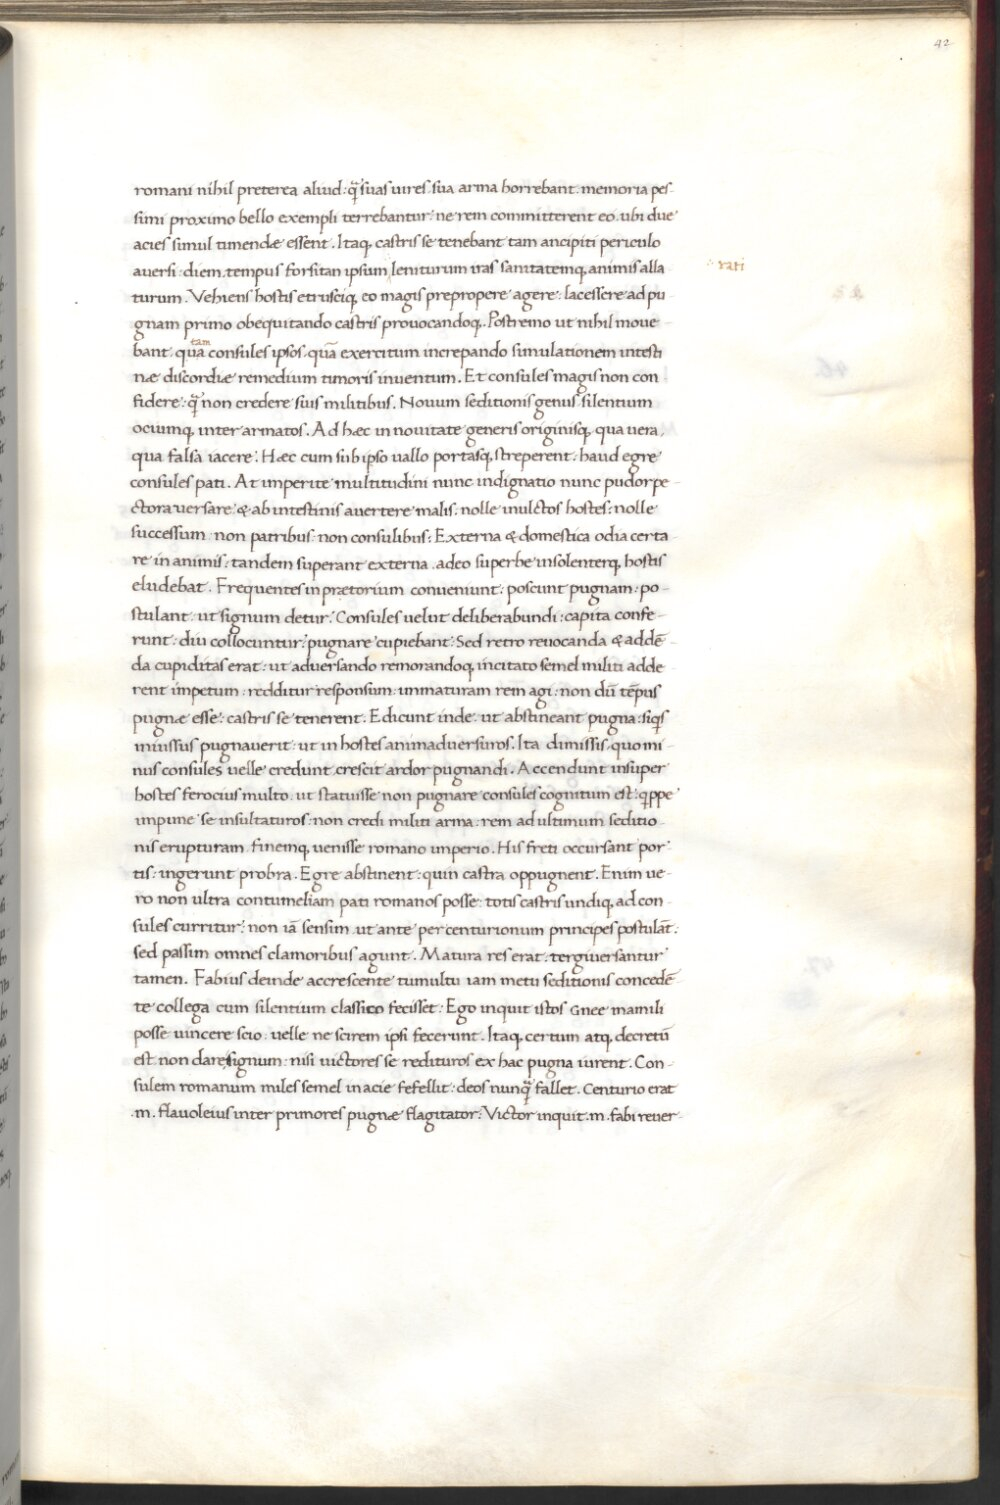 42
romani nihil preterea aliud: q̃ suas uires. sua arma horrebant. memoria pes-
simi proximo bello exempli terrebantur: ne rem committerent eo. ubi due
acies simul timendæ essent. Itaq, castris se tenebant tam ancipiti periculo
auersi: diem. tempus forsitan ipsum leniturum iras sanitatemq, animis alla
rati
turum. Vehiens hostis etrusciq, eo magis prepropere agere: lacessere ad pu
gnam primo obequitando castris prouocandoq,. Postremo ut nihil moue-
tam
bant. qua consules ipsos. quã exercitum increpando simulationem intesti
næ discordiæ remedium timoris inuentum. Et consules magis non con-
fidere: q̃ non credere suis militibus. Nouum seditionis genus silentium
ociumq, inter armatos. Ad hæc in nouitate generis originisq, qua uera,
qua falsa iacere. Hæc cum sub ipso uallo portasq, streperent: haud egre
consules pati. At imperite multitudini nunc indignatio nunc pudor pe-
ctora uersare: & ab intestinis auertere malis: nolle inultos hostes: nolle
successum non patribus non consulibus: Externa & domestica odia certa-
re in animis: tandem superant externa. adeo superbe insolenterq, hostis
eludebat. Frequentes in prætorium conueniunt: poscunt pugnam: po-
stulant: ut signum detur. Consules uelut deliberabundi: capita confe-
runt: diu collocuntur: pugnare cupiebant: Sed retro reuocanda & addẽ
da cupiditas erat: ut aduersando remorandoq, incitato semel militi adde
rent impetum: redditur responsum: immaturam rem agi: non dũ tẽpus
pugnæ esse: castris se tenerent. Edicunt inde: ut abstineant pugna: siq̃s
iniussus pugnauerit: ut in hostes animaduersuros. Ita dimissis. quo mi-
nus consules uelle credunt, crescit ardor pugnandi. Accendunt insuper
hostes ferocius multo. ut statuisse non pugnare consules cognitum est: q̃ppe
impune se insultaturos: non credi militi arma: rem ad ultimum seditio-
nis erupturam. finemq, uenisse romano imperio. His freti occursant por-
tis: ingerunt probra. Egre abstinent: quin castra oppugnent. Enim ue-
ro non ultra contumeliam pati romanos posse: totis castris undiq, ad con-
sules curritur: non iã sensim. ut ante per centurionum principes postulãt.
sed passim omnes clamoribus agunt. Matura res erat. tergiuersantur
tamen. Fabius deinde accrescente tumultu iam metu seditionis concedẽ
te collega cum silentium classico fecisset: Ego inquit istos Gnee manili
posse uincere scio: uelle ne scirem ipsi fecerunt. Itaq, certum atq, decretũ
est non dare signum: nisi uictores se redituros ex hac pugna iurent. Con-
sulem romanum miles semel in acie fefellit: deos nunq̃ fallet. Centurio erat
.m. flauoleius inter primores pugnæ flagitator: Victor inquit. m. fabi reuer-